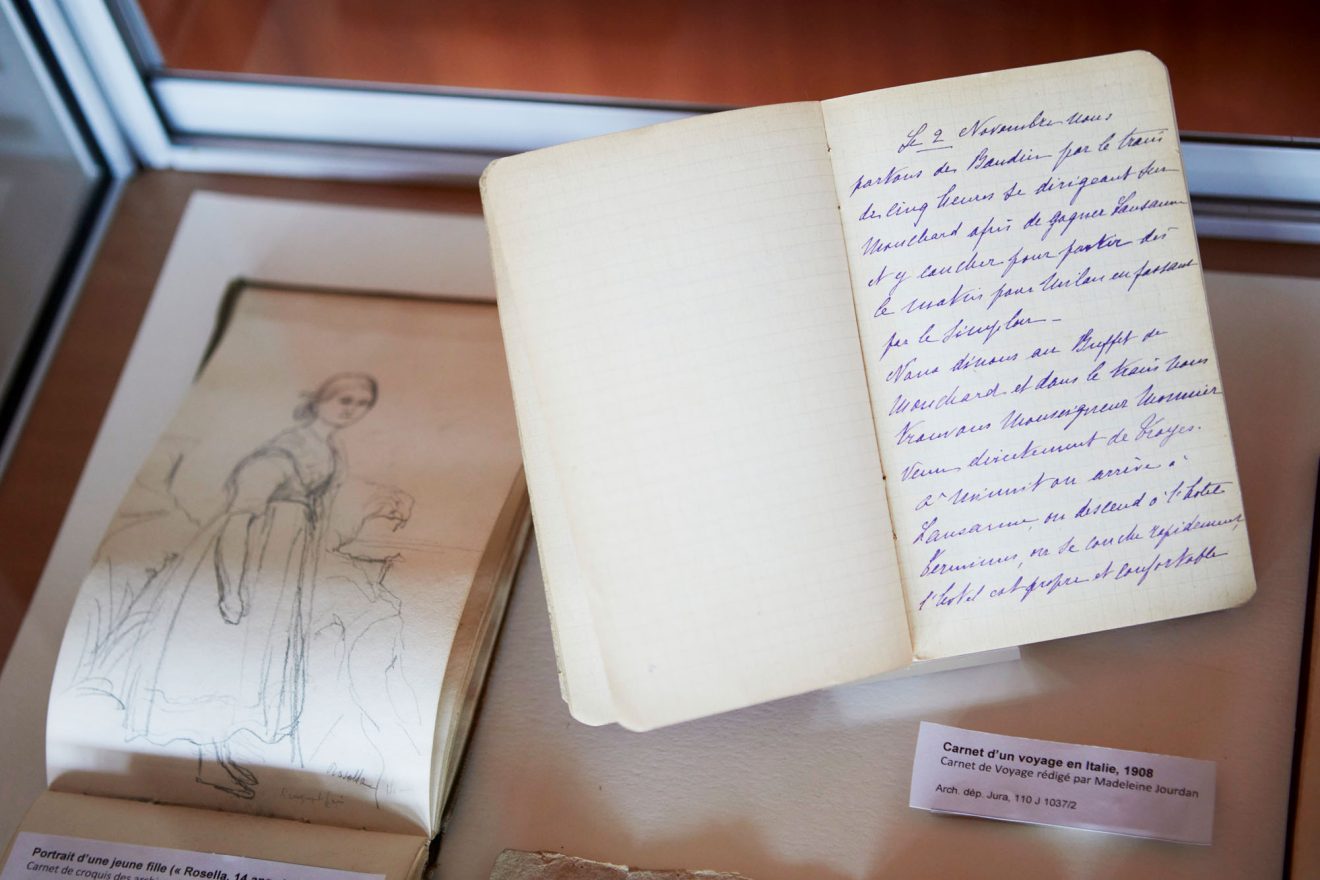 Le 2 Novembre nous
partons de Baudin par le train
de cinq heures se dirigeant sur
Mouchard afin de gagner Lausanne
et y coucher pour partir dès
le matin pour Milan en passant
par le Simplon —
Nous dinons au Buffet de
Mouchard et dans le train nous
trouvons Monseigneur Monnier
venu directement de Troyes.
à minuit on arrive à
Lausanne, on descend à l'hotel
Terminus, on se couche rapidement,
l'hotel est propre et confortable
Rosella
Carnet d'un voyage en Italie, 1908
Carnet de Voyage rédigé par Madeleine Jourdan
Arch. dép. Jura, 110 J 1037/2
Portrait d'une jeune fille (« Rosella, 14
Carnet de croquis des